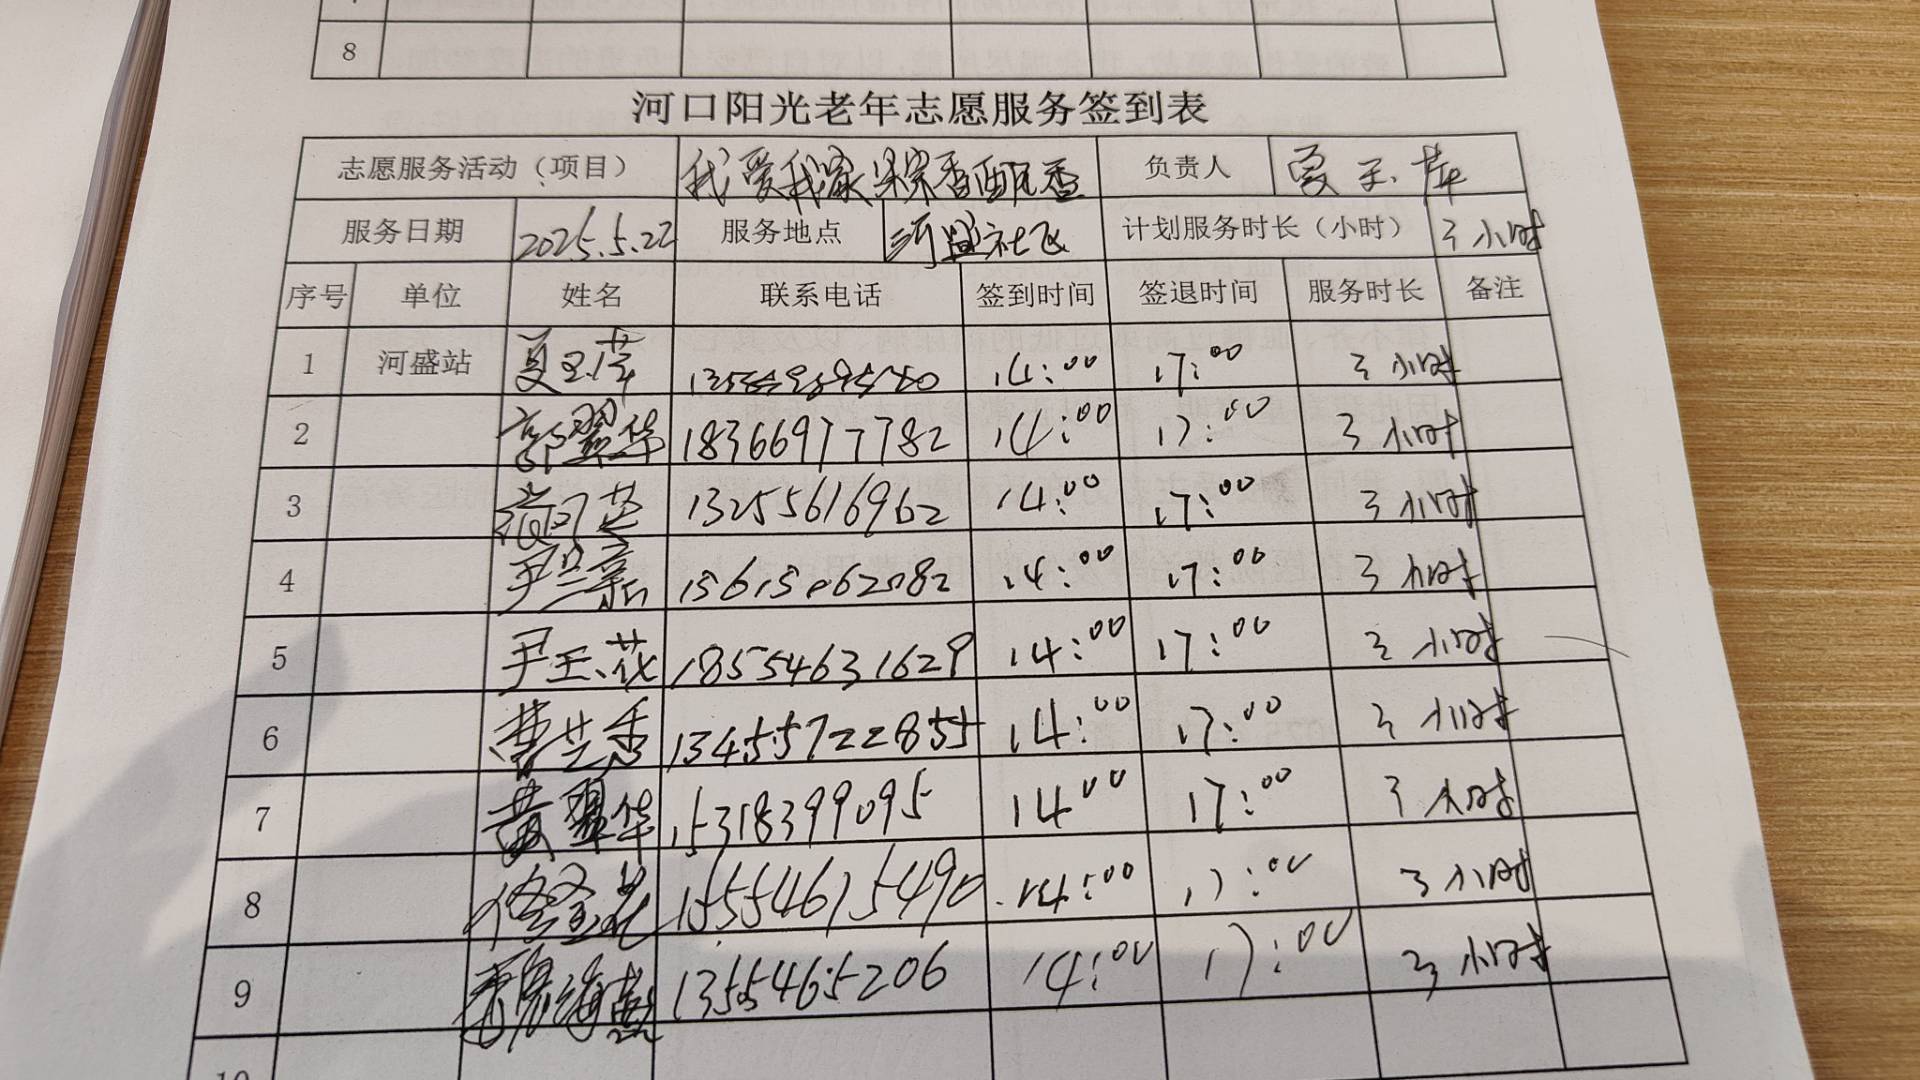 8
河口阳光老年志愿服务签到表
志愿服务活动（项目） 我爱我家 负责人
服务日期 2025.5.22 服务地点 河盛社区 计划服务时长（小时） 3小时
序号 单位 姓名 联系电话 签到时间 签退时间 服务时长 备注
1 河盛站 14:00 17:00 3小时
2 郭翠华 18366977782 14:00 17:00 3小时
3 13255616962 14:00 17:00 3小时
4 尹兰新 15615062082 14:00 17:00 3小时
5 尹玉花 18554631629 14:00 17:00 3小时
6 曹兰香 13455722855 14:00 17:00 3小时
7 黄翠华 15318399095 14 00 17:00 3小时
8 15554675490 14:00 17:00 3小时
9 1355465206 14:00 17:00 3小时
10